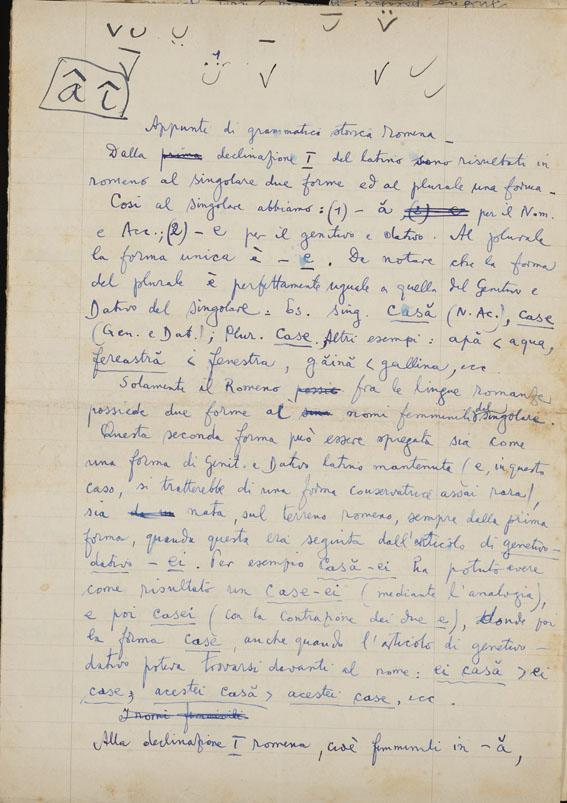 â î
Appunti di grammatica storica romena_
Dalla prima declinazione I del latino sono risultati in
romeno al singolare due forme ed al plurale una forma_
Così al singolare abbiamo: (1) - ă (2) - e per il Nom.
e Acc.; (2) - e per il genitivo e dativo. Al plurale
la forma unica è - e. Da notare che la forma
del plurale è perfettamente uguale a quella del Genitivo e
Dativo del singolare: Es. sing. casă (N. Ac.), case
(Gen. e Dat.); Plur. case. Altri esempi: apă < aqua,
fereastră < fenestra, găină < gallina, ecc
Solamente il Romeno fra le lingue romanze
possiede due forme al nomi femminili del singolare.
Questa seconda forma può essere spiegata sia come
una forma di Genit. e Dativo latino mantenuta (e, in questo
caso, si tratterebbe di una forma conservatrice assai rara),
sia da un nata, sul terreno romeno, sempre dalla prima
forma, quando questa era seguita dall'articolo di genetivo-
dativo - ei. Per esempio Casă-ei ha potuto avere
come risultato un case-ei (mediante l'analogia),
e poi casei (con la contrazione dei due e), donde poi
la forma case, anche quando l'articolo di genetivo-
dativo poteva trovarsi davanti al nome: ei casă > ei
case, acestei casă > acestei case, ecc.
I nomi femminili
Alla declinazione I romena, cioè femminili in - ă,